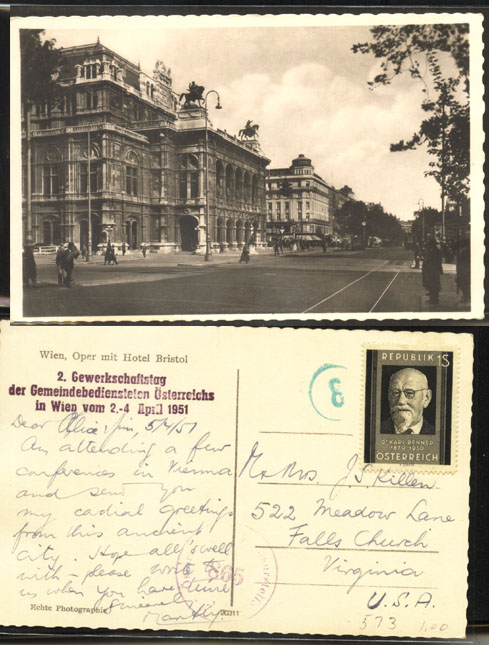 Wien, Oper mit Hotel Bristol
2. Gewerkschaftstag
der Gemeindebediensteten Österreichs
in Wien vom 2.-4 April 1951
Dear 5/4/51
Am attending a few
conferences in Vienna
and send you
my cadial greetings
from this ancient
city. Hope all's well
with - please write to
us when you have time
Sincerely
Echte Photographie
20311
8
REPUBLIK 1S
DR KARL RENNER
1870-1950
ÖSTERREICH
Mr & Mrs J S Killen
522 Meadow Lane
Falls Church
Virginia
U.S.A.
573 1.00